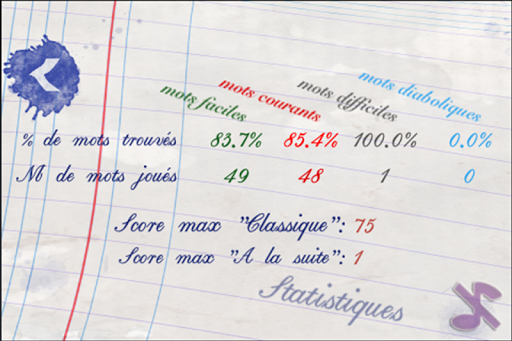 mots faciles mots courants mots difficiles mots diaboliques
% de mots trouvés 83.7% 85.4% 100.0% 0.0%
N de mots joués 49 48 1 0
Score max "Classique": 75
Score max "A la suite": 1
Statistiques